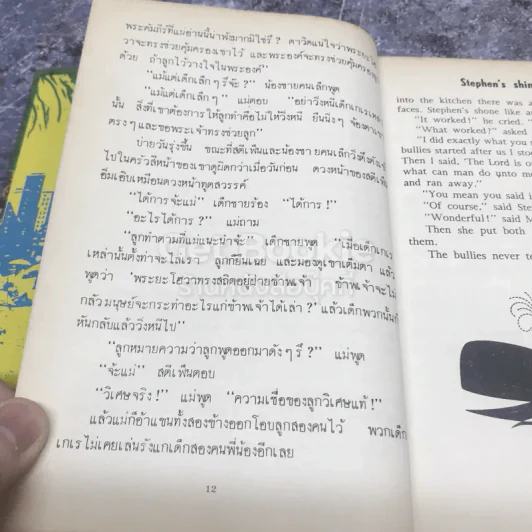 พระคัมภีร์ที่แม่อ่านนี้น่าฟังมากมิใช่รึ? ดาวิดแน่ใจว่าพระยะโฮ
วาจะทรงช่วยคุ้มครองเขาไว้ และพระองค์จะทรงช่วยคุ้มครองลูก
ด้วย ถ้าลูกไว้วางใจในพระองค์"
"แม้แต่เด็กเล็กๆรึจ๊ะ?" น้องชายคนเล็กพูด
"แม้แต่เด็กเล็กๆ" แม่ตอบ "อย่าวิ่งหนีเด็กเกเรเหล่า
นั้น สิ่งที่เขาต้องการให้ลูกทำคือไม่ให้วิ่งหนี ยืนนิ่งๆ จ้องตาเขา
ตรงๆและขอพระเจ้าทรงช่วยลูก"
บ่ายวันรุ่งขึ้น ขณะที่สตีเฟ็นและน้องชายคนเล็กวิ่ง
ไปในครัวสีหน้าของเขาดูผิดกว่าเมื่อวันก่อน ดวงหน้าของสตีเฟ็น
อิ่มเอิบเหมือนดวงหน้าทูตสวรรค์
"ได้การจ้ะแม่" เด็กชายร้อง "ได้การ!"
"อะไรได้การ?" แม่ถาม
"ลูกทำตามที่แม่แนะนำจ้ะ" เด็กชายพูด "เมื่อเด็กเกเร
เหล่านั้นตั้งท่าจะไล่เรา ลูกก็ยืนเฉย และมองดูเขาเต็มตา แล้ว
พูดว่า 'พระยะโฮวาทรงสถิตอยู่ฝ่ายข้าพเจ้า ข้าพเจ้าจะไม่
กลัวมนุษย์จะกระทำอะไรแก่ข้าพเจ้าได้เล่า?' แล้วเด็กพวกนั้นก็
หันกลับแล้ววิ่งหนีไป"
"ลูกหมายความว่าลูกพูดออกมาดังๆรึ?" แม่พูด
"จ้ะแม่" สตีเฟ็นตอบ
"วิเศษจริง!" แม่พูด "ความเชื่อของลูกวิเศษแท้!"
แล้วแม่ก็อ้าแขนทั้งสองข้างออกโอบลูกสองคนไว้ พวกเด็ก
เกเรไม่เคยเล่นรังแกเด็กสองคนพี่น้องอีกเลย
12
Stephen's
into the kitchen there was a
faces. Stephen's shone like
"It worked!" he cried.
"What worked?" asked
"I did exactly what you
bullies started after us I stood
Then I said, 'The Lord is
what can man do unto me
and ran away."
"You mean you said
"Of course," said
"Wonderful!" said
Then she put both
them.
The bullies never
Get Bookie
ร้านหนังสือมือสอง